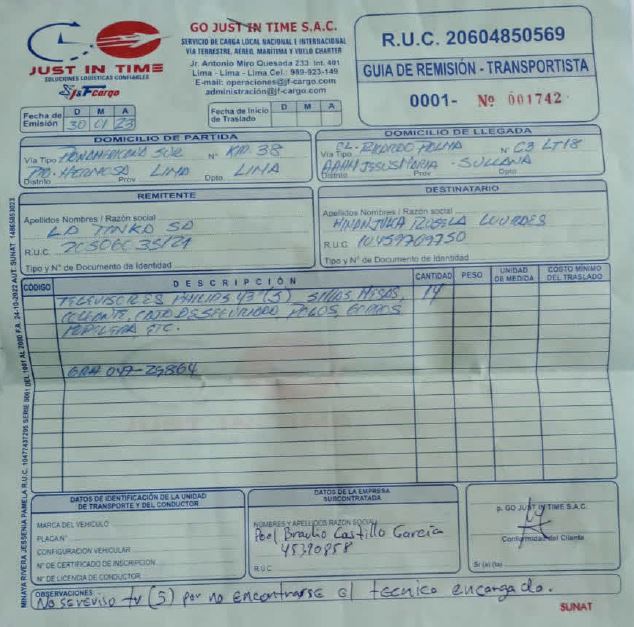 JUST IN TIME
SOLUCIONES LOGISTICAS CONFIABLES
J&F cargo
GO JUST IN TIME S.A.C.
SERVICIO DE CARGA LOCAL NACIONAL E INTERNACIONAL
VIA TERRESTRE, AEREO, MARITIMA Y VUELO CHARTER
Jr. Antonio Miro Quesada 233 Int. 401
Lima - Lima - Lima Cel.: 989-923-149
E-mail: operaciones@jf-cargo.com
administración@jf-cargo.com
R.U.C. 20604850569
GUIA DE REMISIÓN - TRANSPORTISTA
0001- Nº 001742
Fecha de Emisión D M A
30 01 23
Fecha de Inicio de Traslado D M A
DOMICILIO DE PARTIDA
Vía Tipo PANAMERICANA SUR N° KM 38
PTA. HERMOSA LIMA LIMA
Distrito Prov Dpto.
DOMICILIO DE LLEGADA
Vía Tipo CL. RICARDO PALMA N° C3 LT18
AAHH JESUS MARIA - SULLANA
Distrito Prov Dpto.
REMITENTE
Apellidos Nombres / Razón social
LA TINKA SA
R.U.C.
Tipo y N° de Documento de Identidad
DESTINATARIO
Apellidos Nombres / Razón social
LOURDES
R.U.C 10459709750
Tipo y N° de Documento de Identidad
CÓDIGO DESCRIPCIÓN CANTIDAD PESO UNIDAD DE MEDIDA COSTO MÍNIMO DEL TRASLADO
TELEVISORES PHILIPS 43" (5), SILLAS, MESAS, 14
CAJA DE SEGURIDAD
ETC.
GRR 047-29864
JUST IN TIME
DATOS DE IDENTIFICACIÓN DE LA UNIDAD DE TRANSPORTE Y DEL CONDUCTOR
MARCA DEL VEHÍCULO
PLACA N°
CONFIGURACIÓN VEHICULAR
N° DE CERTIFICADO DE INSCRIPCIÓN
N° DE LICENCIA DE CONDUCTOR
DATOS DE LA EMPRESA SUBCONTRATADA
NOMBRES Y APELLIDOS RAZÓN SOCIAL
Poel Braulio Castillo García
45390858
R.U.C
p. GO JUST IN TIME S.A.C.
Conformidad del Cliente
Sr (a) (ta)
OBSERVACIONES:
No se reviso tv (5) por no encontrarse el tecnico encargado.
SUNAT
MINAYA RIVERA JESSENIA PAMELA R.U.C. 10477437295 SERIE 0001 DEL 1001 AL 2000 F.A. 24-10-2022 AUT. SUNAT 14865853023